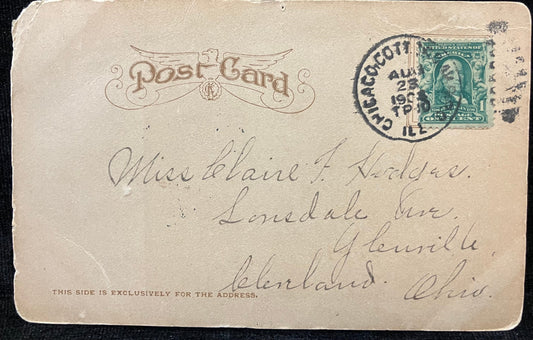 Post Card
CHICAGO·COTT
AUG
23
190
TP
ILL
UNITED STATES OF
AMERICA
1
ONE CENT
Miss Claire F. Hodges.
Lonsdale Ave.
Glenville
Cleveland. Ohio.
THIS SIDE IS EXCLUSIVELY FOR THE ADDRESS.